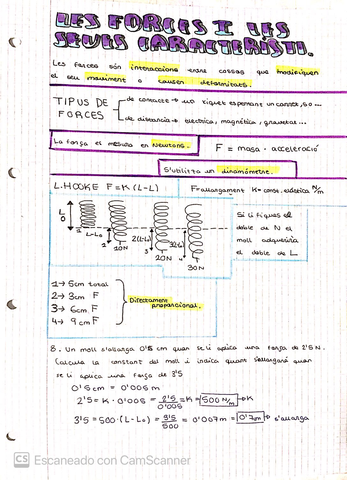 LES FORCES I LES
SEUES CARACTERÍSTI.
Les forces són interaccions entre cossos que modifiquen
el seu moviment o causen deformitats.
TIPUS DE FORCES
de contacte → un xiquet espentant un carret, so...
de distància → elèctrica, magnètica, gravetat...
La força el mesura en Newtons.
F = massa · acceleració
S'utilitza un dinamòmetre.
L.HOOKE F=K(L-L)
F=allargament K= const. elàstica N/m
L0
L-L0
2(L-L0)
1
2
10N
3
20N
4
30N
Si li fiques el
doble de N el
moll adquirirà
el doble de L
1→ 5cm total
2→ 3cm F
3→ 6cm F
4→ 9cm F
Directament
proporcional.
8. Un moll s'allarga 0'5 cm quan se li aplica una força de 2'5 N.
Calcula la constant del moll i indica quant s'allargarà quan
se li aplica una força de 3'5
0'5cm = 0'005m
2'5 = K · 0'005 = 2'5/0'005 = K = 500 N/m → K
3'5 = 500·(L-L0) = 3'5/500 = 0'007m = 0'7m → s'allarga
CS Escaneado con CamScanner